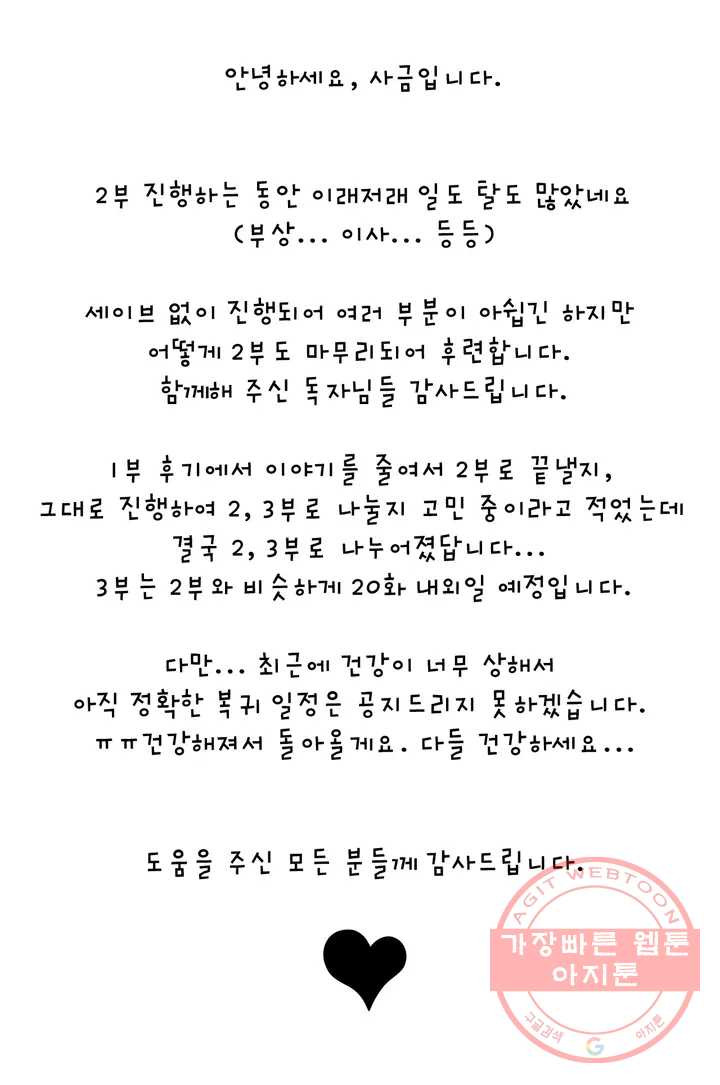 안녕하세요, 사금입니다.
2부 진행하는 동안 이래저래 일도 탈도 많았네요
(부상... 이사... 등등)
세이브 없이 진행되어 여러 부분이 아쉽긴 하지만
어떻게 2부도 마무리되어 후련합니다.
함께해 주신 독자님들 감사드립니다.
1부 후기에서 이야기를 줄여서 2부로 끝낼지,
그대로 진행하여 2, 3부로 나눌지 고민 중이라고 적었는데
결국 2, 3부로 나누어졌답니다...
3부는 2부와 비슷하게 20화 내외일 예정입니다.
다만... 최근에 건강이 너무 상해서
아직 정확한 복귀 일정은 공지드리지 못하겠습니다.
ㅠㅠ건강해져서 돌아올게요. 다들 건강하세요...
도움을 주신 모든 분들께 감사드립니다.
AGIT WEBTOON
가장빠른 웹툰
아지툰
구글검색 G 아지툰